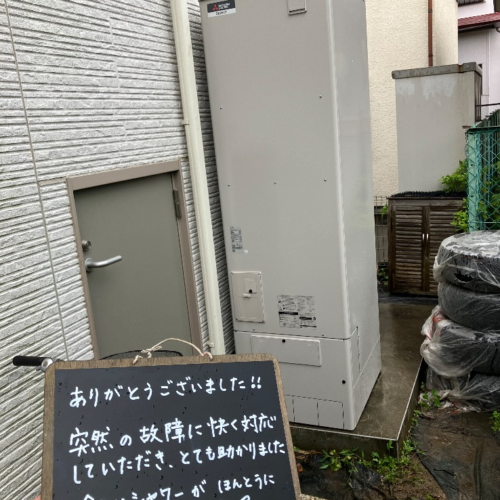 ありがとうございました!!
突然の故障に快く対応
していただき、とても助かりました
シャワーが ほんとうに